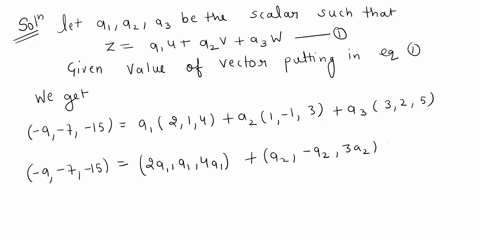 Solⁿ let a₁, a₂, a₃ be the scalar such that
z = a₁u + a₂v + a₃w —— ①
Given value of vector putting in eq ①
We get
(-9,-7,-15) = a₁(2,1,4) + a₂(1,-1,3) + a₃(3,2,5)
(-9,-7,-15) = (2a₁,a₁,4a₁) + (a₂,-a₂,3a₂)